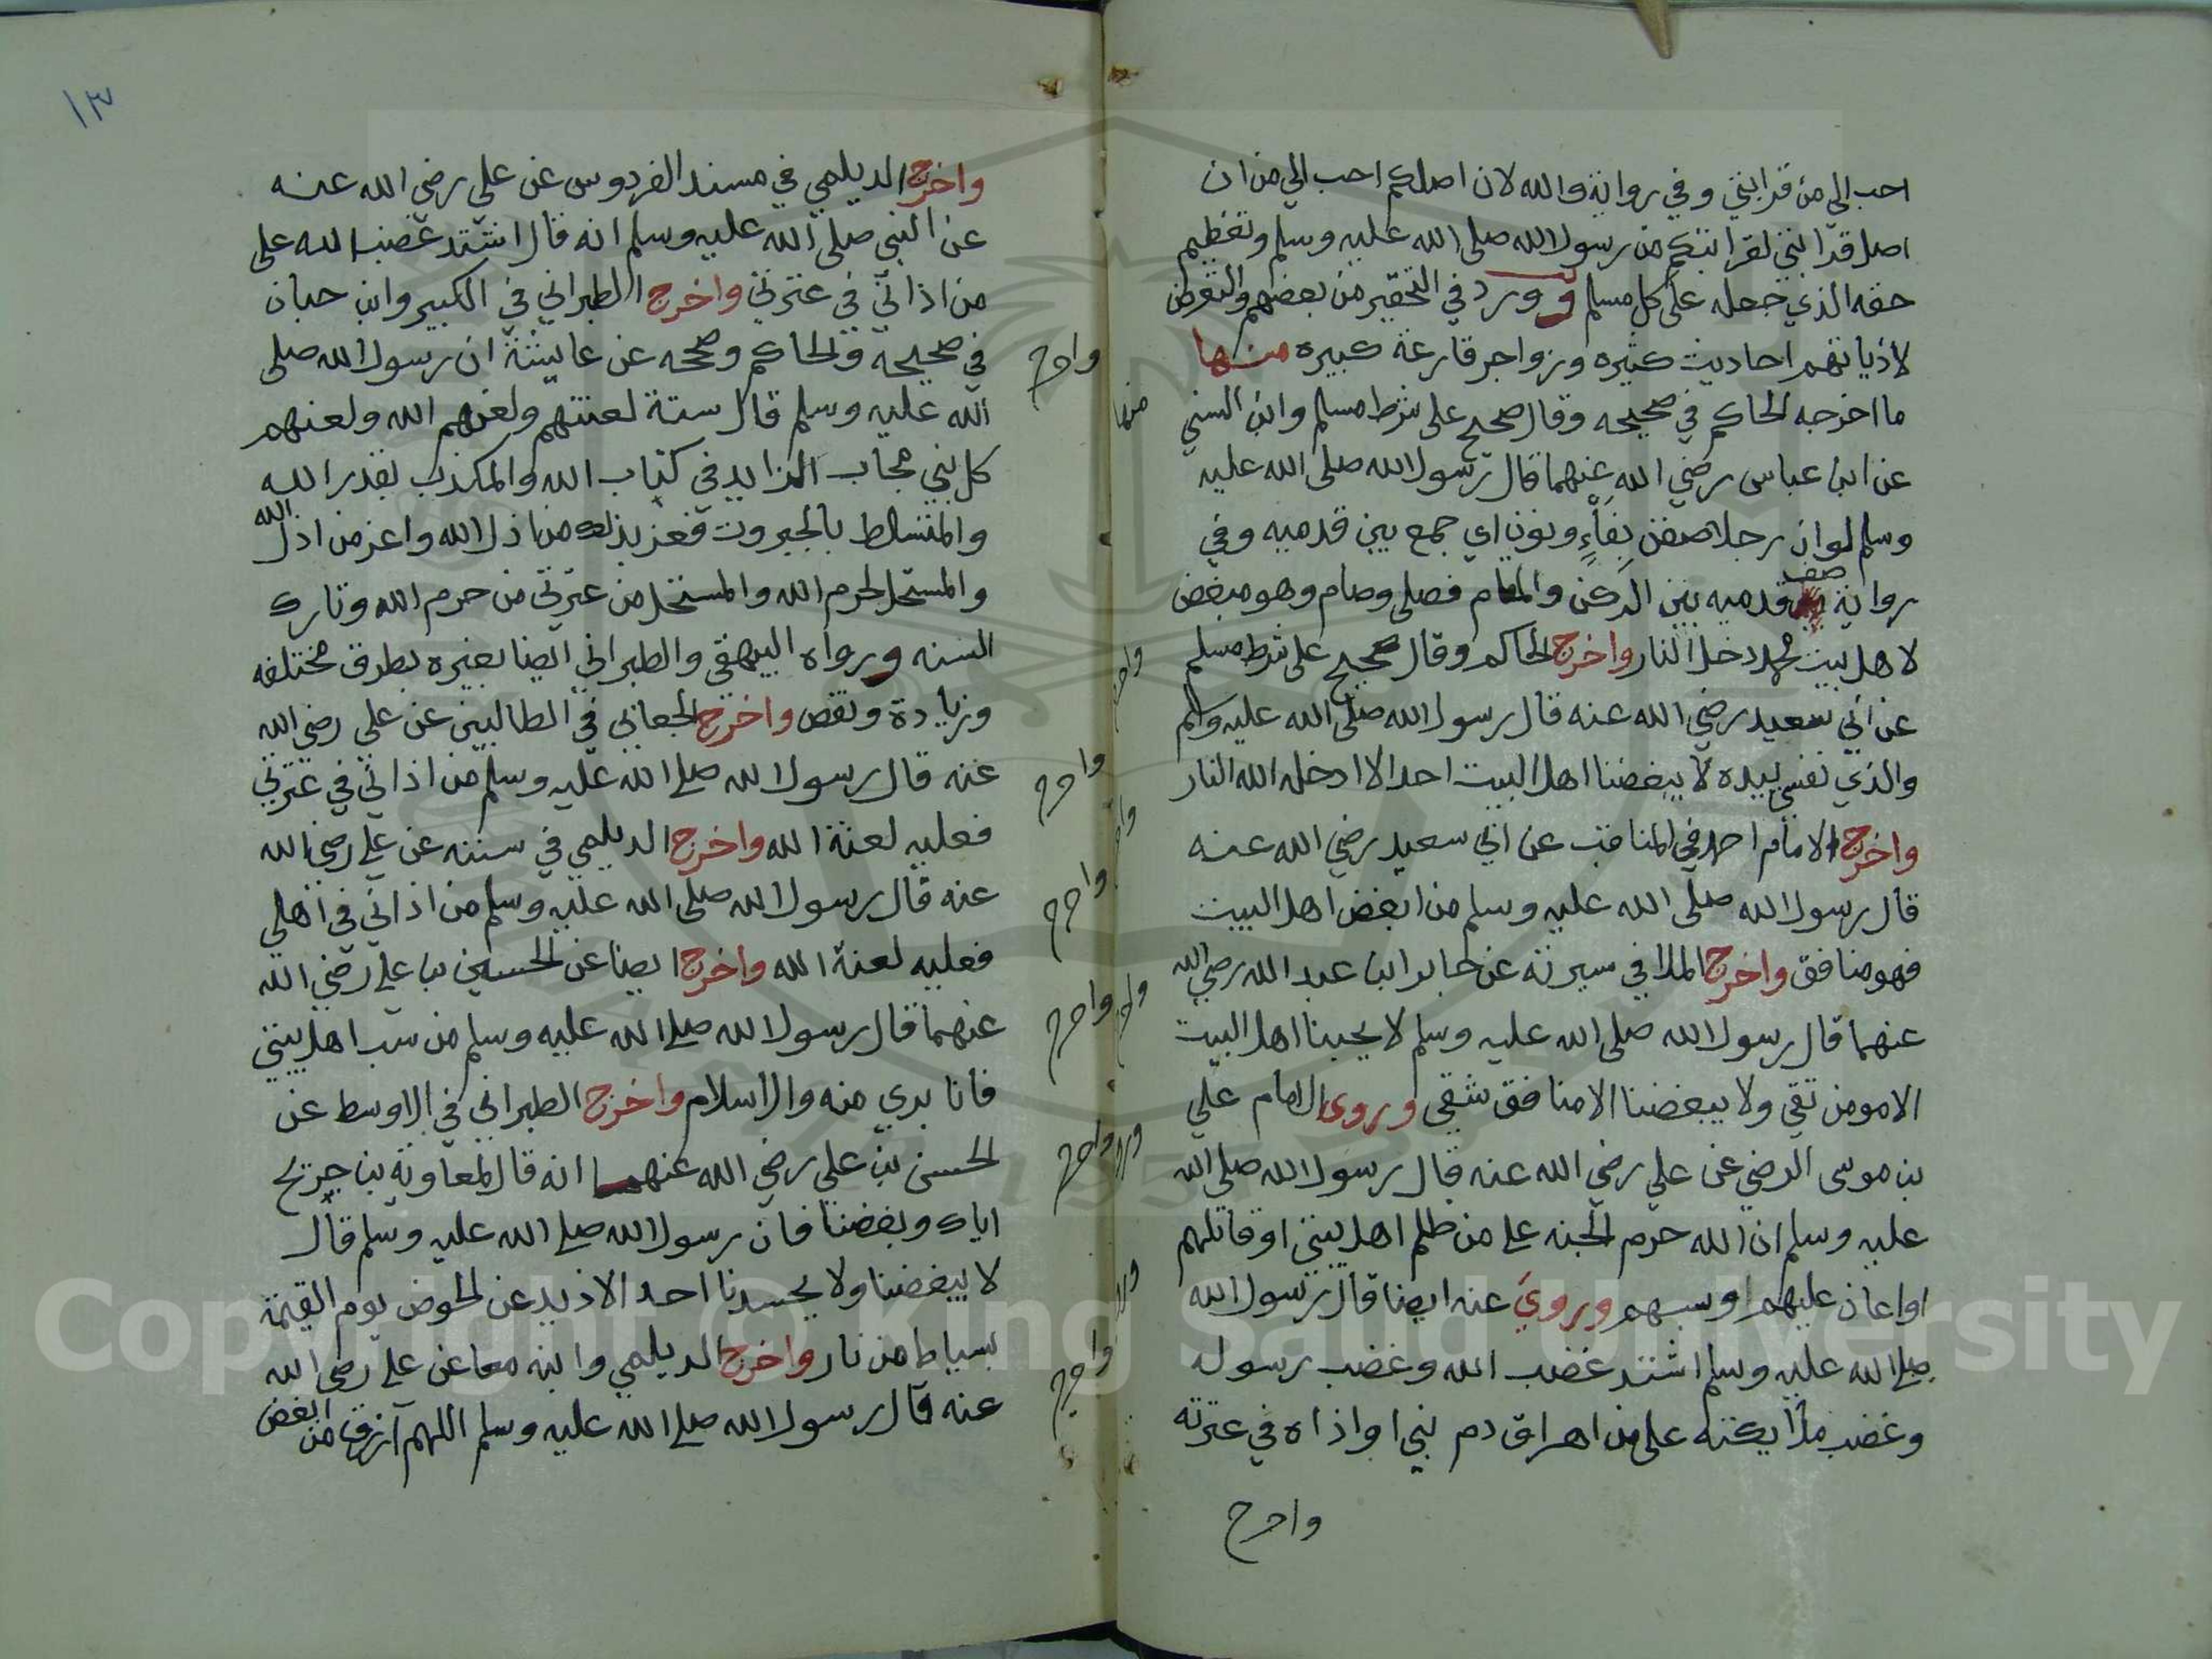 احب الي من قرابتي وفي رواية والله لان اصلكم احب الي من ان
اصل قرابتي لقرابتكم من رسول الله صلى الله عليه وسلم وتعظيم
حقه الذي جعله على كل مسلم وورد في التحقير من بعضهم والتعرض
لاذياتهم احاديث كثيره وزواجر قارعة كبيره منها
ما اخرجه الحاكم في صحيحه وقال صحيح على شرط مسلم وابن السني
عن ابن عباس رضي الله عنهما قال رسول الله صلى الله عليه
وسلم لو ان رجلا صفن بفاء ونون اي جمع بين قدميه وفي
رواية صف قدميه بين الركن والمقام فصلى وصام وهو مبغض
لاهل بيت محمد دخل النار واخرج الحاكم وقال صحيح على شرط مسلم
عن ابي سعيد رضي الله عنه قال رسول الله صلى الله عليه وسلم
والذي نفسي بيده لا يبغضنا اهل البيت احد الا ادخله الله النار
واخرج الامام احمد في المناقب عن ابي سعيد رضي الله عنه
قال رسول الله صلى الله عليه وسلم من ابغض اهل البيت
فهو منافق واخرج الملا في سيرته عن جابر ابن عبد الله رضي الله
عنهما قال رسول الله صلى الله عليه وسلم لا يحبنا اهل البيت
الا مومن تقي ولا يبغضنا الا منافق شقي وروى الامام علي
بن موسى الرضي عن علي رضي الله عنه قال رسول الله صلى الله
عليه وسلم ان الله حرم الجنه على من ظلم اهل بيتي او قاتلهم
او اعان عليهم او سبهم وروي عنه ايضا قال رسول الله
صلى الله عليه وسلم اشتد غضب الله وغضب رسوله
وغضب ملائكته على من اهراق دم نبي او اذاه في عترته
واخرج
١٣
واخرج الديلمي في مسند الفردوس عن علي رضي الله عنه
عن النبي صلى الله عليه وسلم انه قال اشتد غضب الله على
من اذاني في عترتي واخرج الطبراني في الكبير وابن حبان
في صحيحه والحاكم وصححه عن عايشة ان رسول الله صلى
الله عليه وسلم قال ستة لعنتهم ولعنهم الله ولعنهم
كل نبي مجاب الزايد في كتاب الله والمكذب بقدر الله
والمتسلط بالجبروت فعز بذلك من اذل الله واعز من اذل الله
والمستحل لحرم الله والمستحل من عترتي من حرم الله وتارك
السنه ورواه البيهقي والطبراني ايضا بغيره بطرق مختلفه
وزيادة ونقص واخرج الجعابي في الطالبين عن علي رضي الله
عنه قال رسول الله صلى الله عليه وسلم من اذاني في عترتي
فعليه لعنة الله واخرج الديلمي في سننه عن علي رضي الله
عنه قال رسول الله صلى الله عليه وسلم من اذاني في اهلي
فعليه لعنة الله واخرج ايضا عن الحسين بن علي رضي الله
عنهما قال رسول الله صلى الله عليه وسلم من سب اهل بيتي
فانا بري منه والاسلام واخرج الطبراني في الاوسط عن
الحسن بن علي رضي الله عنهما انه قال لمعاوية بن جريح
اياك وبغضنا فان رسول الله صلى الله عليه وسلم قال
لا يبغضنا ولا يحسدنا احد الا ذيد عن الحوض يوم القيمة
بسياط من نار واخرج الديلمي وابنه معا عن علي رضي الله
عنه قال رسول الله صلى الله عليه وسلم اللهم ارزق من ابغض
واخرج
منها
واخرج
واخرج
واخرج
واخرج
واخرج
واخرج
Copyright © King Saud University